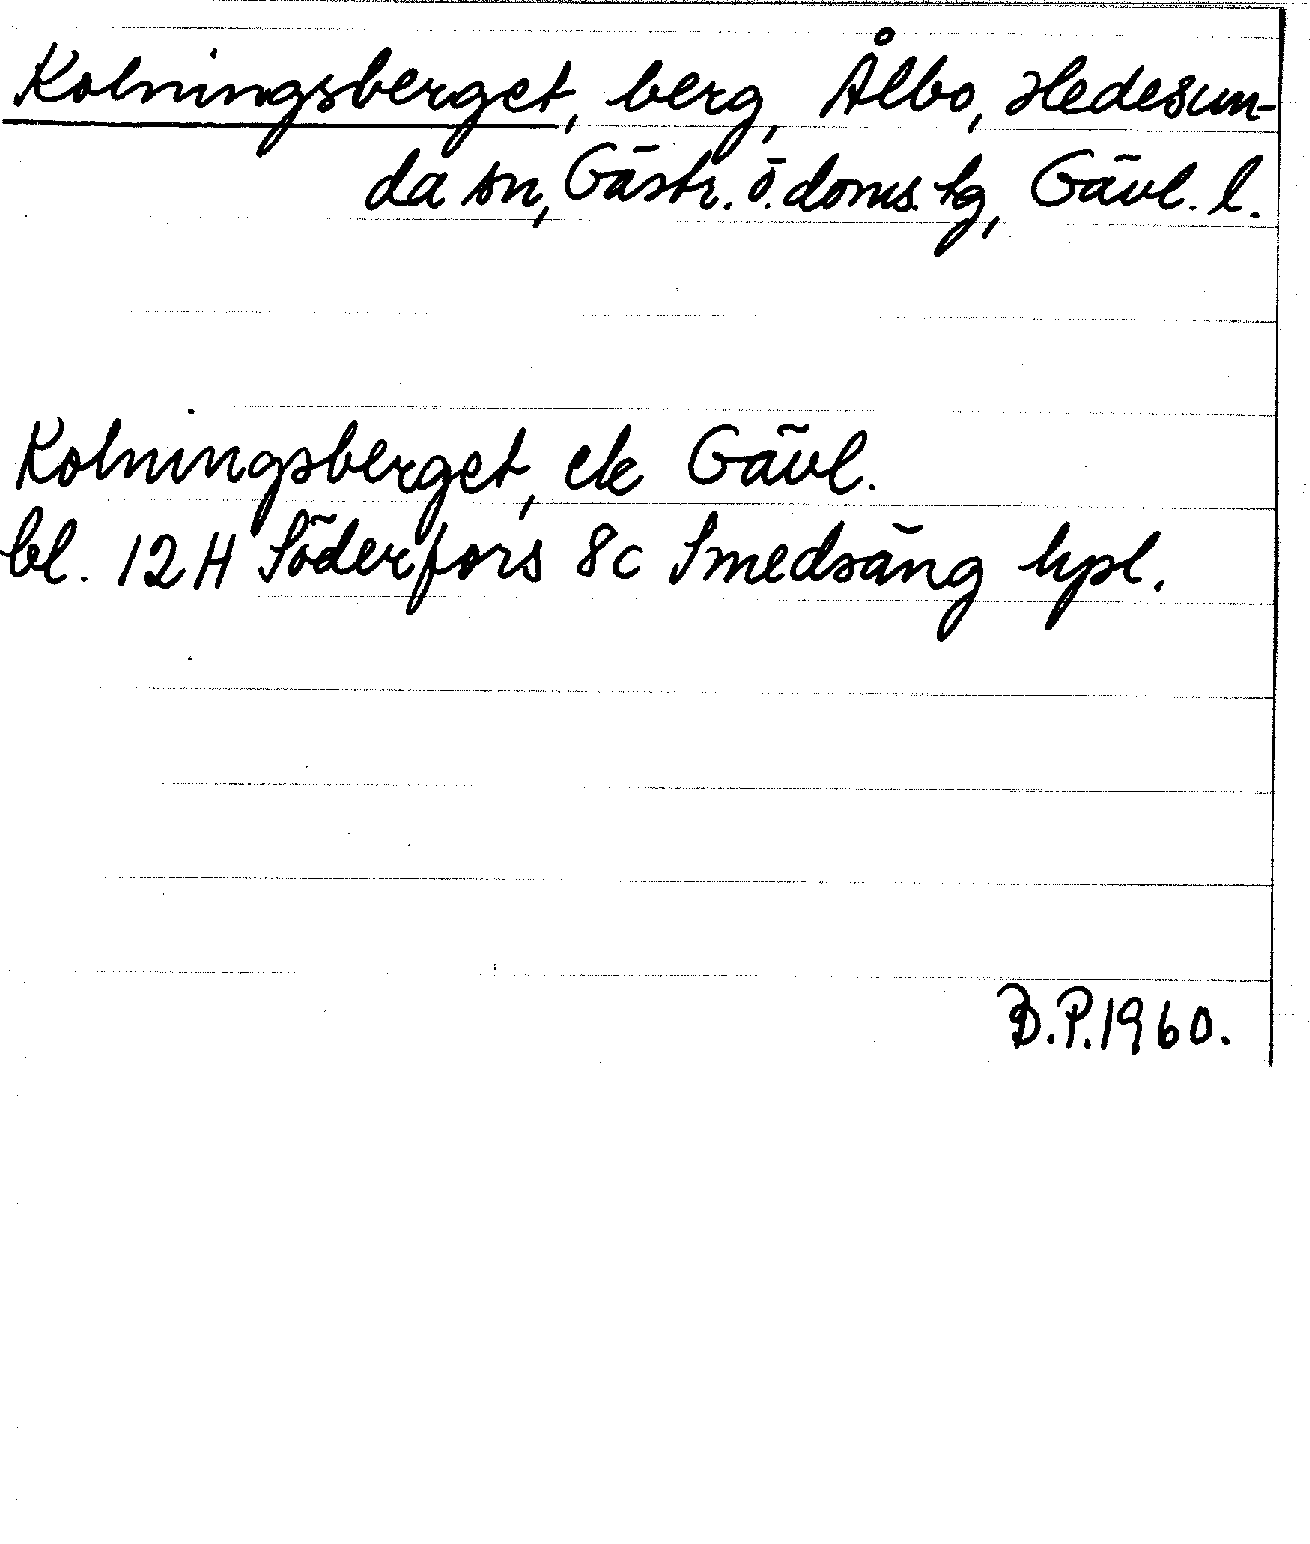 Kolningsberget, berg, Ålbo, Hedesun-
da sn, Gästr. ö. doms. tg, Gävl. l.
Kolningsberget, ek Gävl.
bl. 12 H Söderfors 8c Smedsäng hpl.
B.P. 1960.